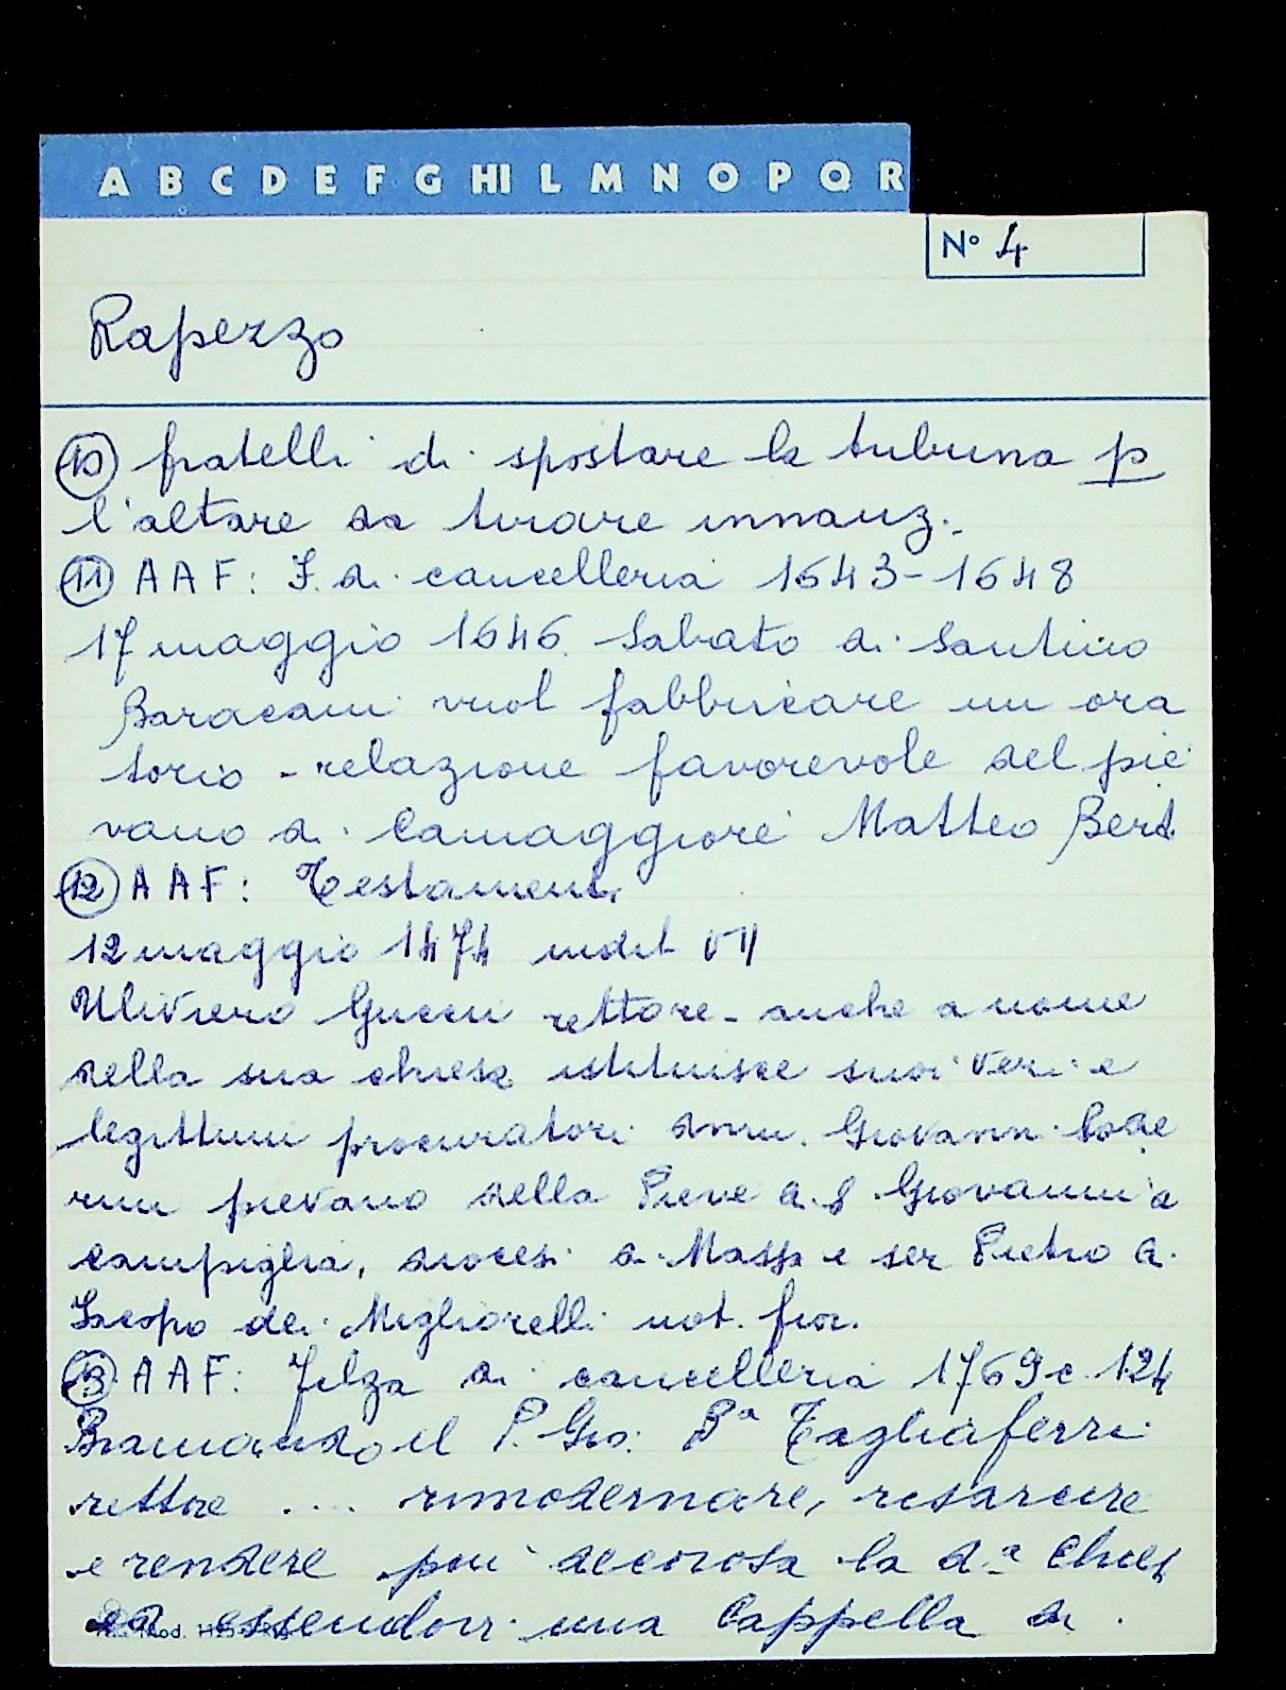 A B C D E F G HI L M N O P Q R
N° 4
Rapezzo
10 fratelli di spostare la tribuna p
l'altare da tirare innanz.
11 AAF: F. di cancelleria 1643-1648
17 maggio 1646. Sabato di Santino
Baracani vuol fabbricare un ora
torio - relazione favorevole del pie
vano di Camaggiore Matteo Bert.
12 AAF: Testamenti
12 maggio 1474 indit VII
Uliviero Gucci rettore - anche a nome
della sua chiesa istituisce suoi veri e
legittimi procuratori dnm. Giovanni
rini pievano della Pieve di S Giovanni a
campiglia, diocesi di Massa e ser Pietro di
Iacopo dei Migliorelli not. fior.
13 AAF: Filza di cancelleria 1769 c. 124
Bramando il P. Gio: Ba Tagliaferri
rettore .... rimodernare, risarcire
e rendere piu decorosa la d.a Chies
ed essendovi una Cappella di